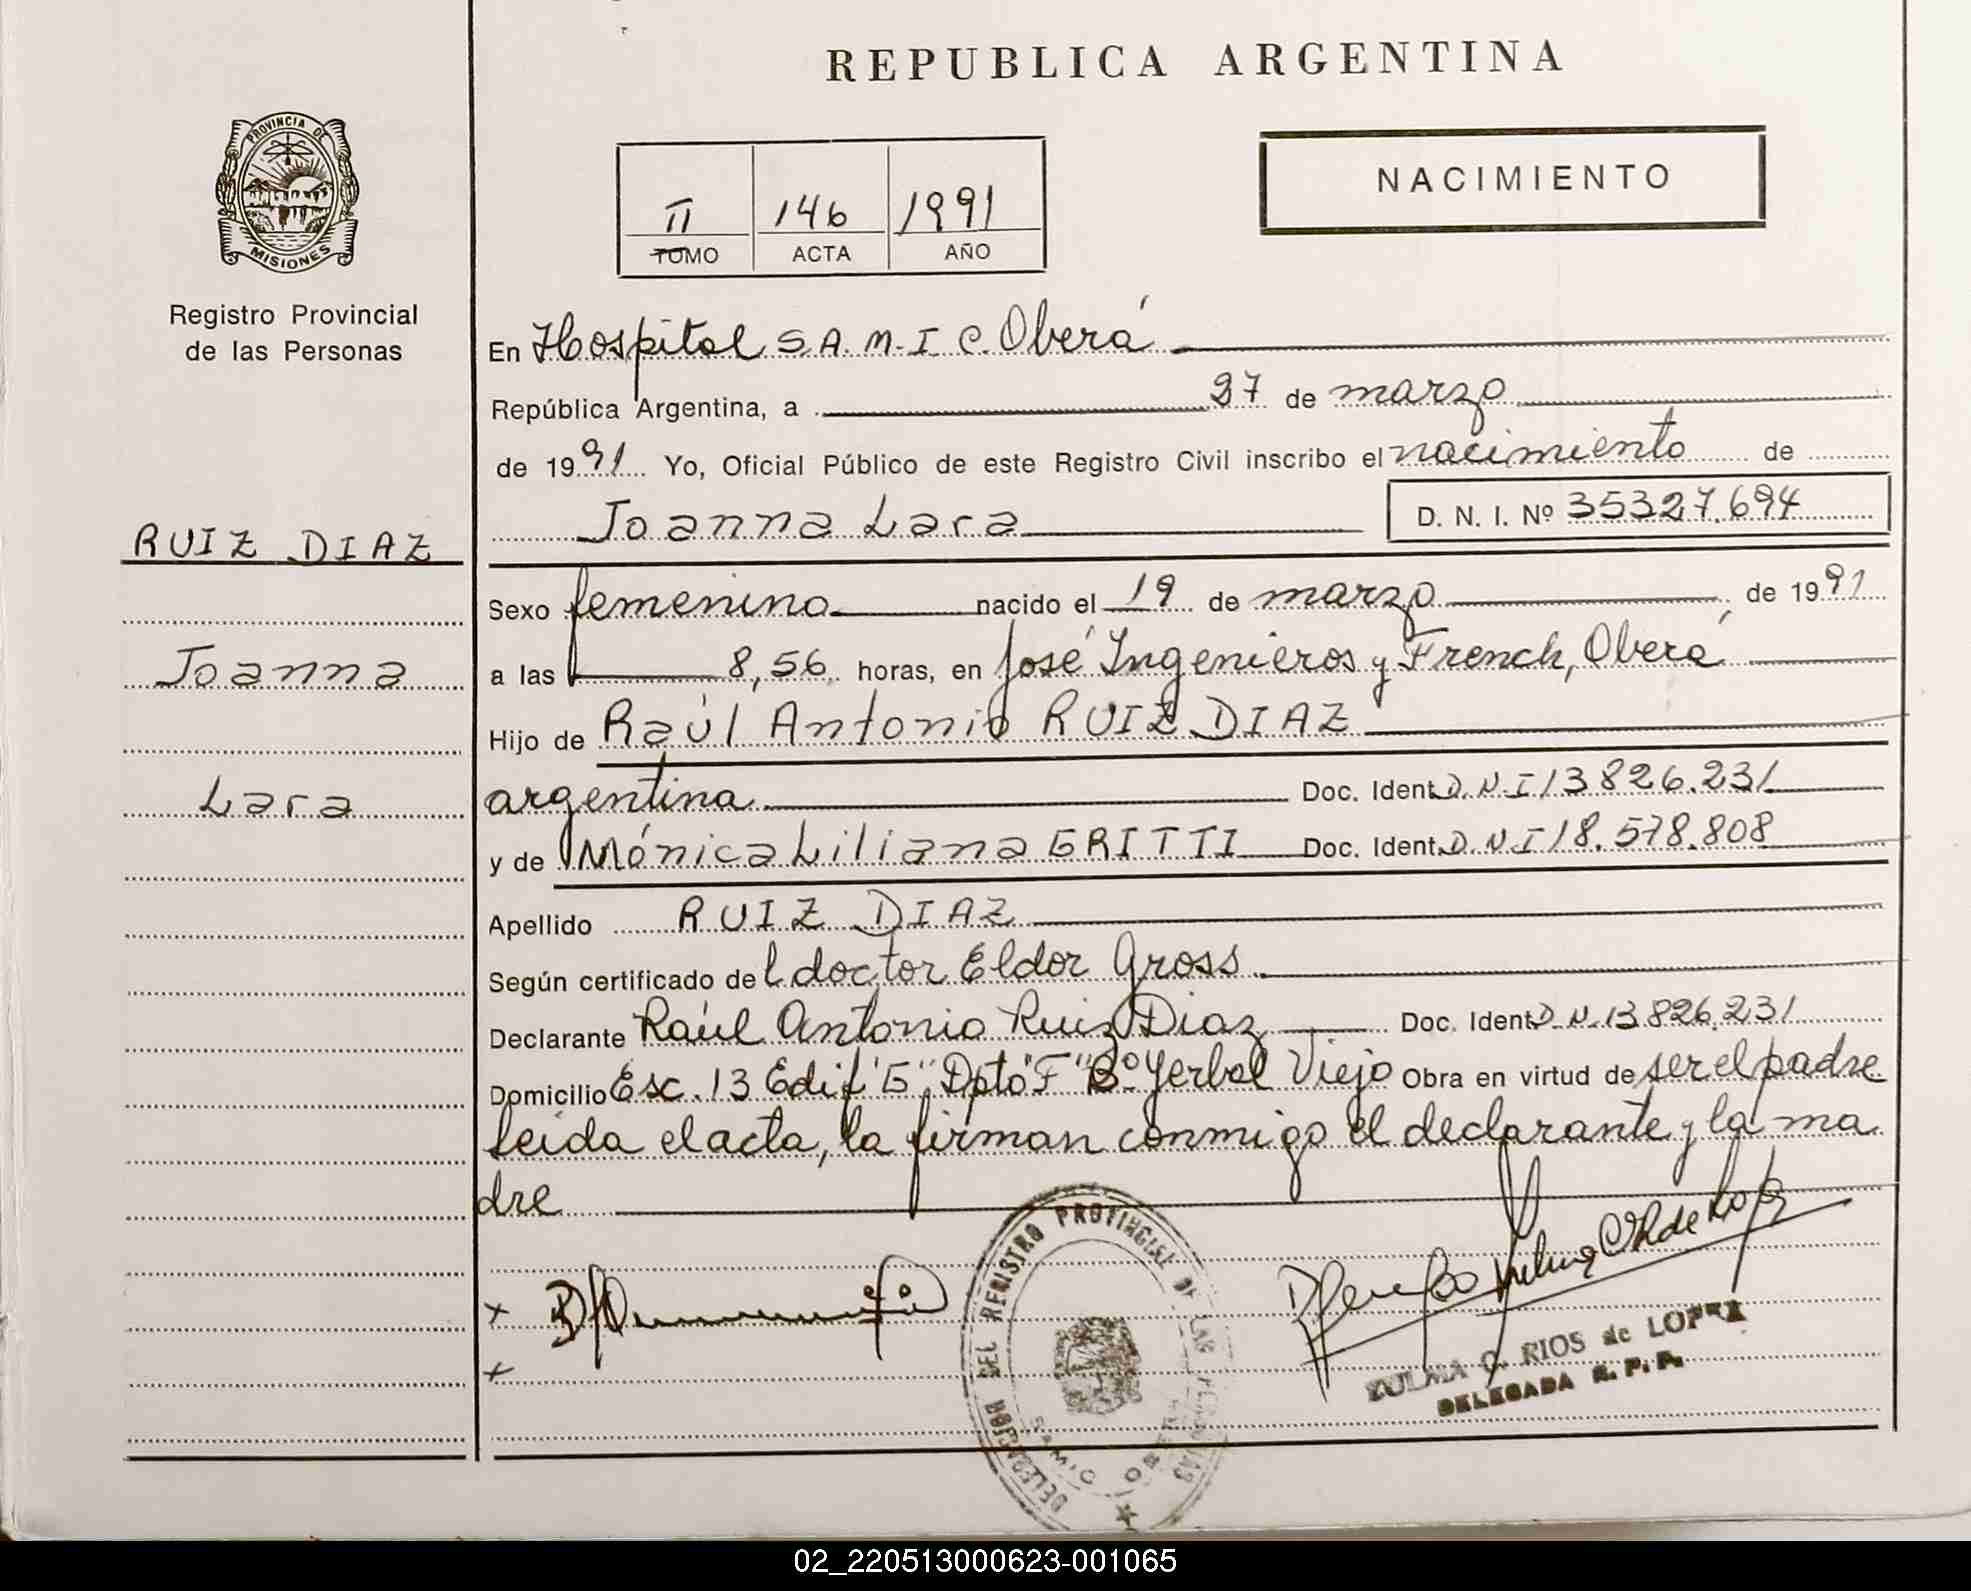 REPUBLICA ARGENTINA
PROVINCIA DE
MISIONES
Registro Provincial
de las Personas
NACIMIENTO
II 146 1991
TOMO ACTA AÑO
En Hospital S.A.M.I.C. Oberá
República Argentina, a 27 de marzo
de 1991 Yo, Oficial Público de este Registro Civil inscribo el nacimiento de
Joanna Lara D. N. I. Nº 35327.694
RUIZ DIAZ
Joanna
Lara
Sexo femenino nacido el 19 de marzo de 1991
a las 8,56 horas, en José Ingenieros y French, Oberá
Hijo de Raúl Antonio RUIZ DIAZ
argentina Doc. Ident. D.N.I 13826.231
y de Mónica Liliana GRITTI Doc. Ident. D.N.I 18.578.808
Apellido RUIZ DIAZ
Según certificado de l doctor Eldor Gross
Declarante Raúl Antonio Ruiz Diaz Doc. Ident. D.N. 13826.231
Domicilio Esc. 13 Edif "G" Dpto "F" Bº Yerbal Viejo Obra en virtud de ser el padre
leida el acta, la firman conmigo el declarante y la ma
dre
DELEGACION DEL REGISTRO PROVINCIAL DE LAS PERSONAS
ZULMA O. RIOS de LOPEZ
DELEGADA R. P. P.
02_220513000623-001065